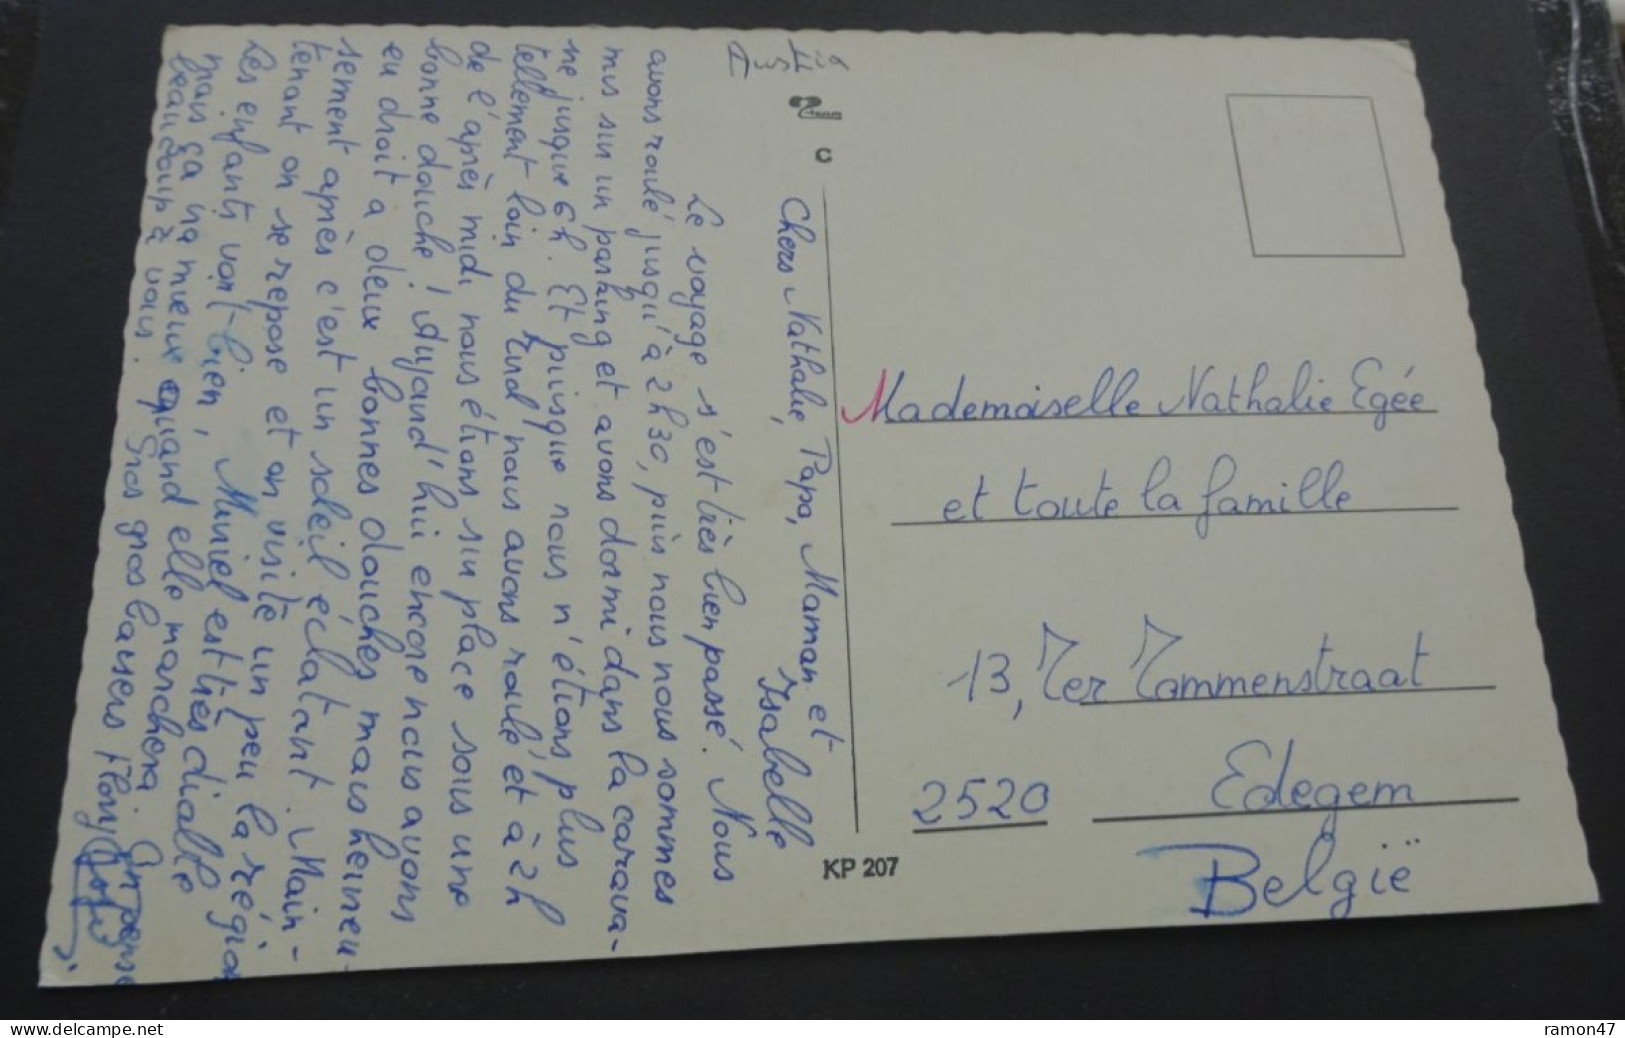 Austria
Chers Nathalie, Papa, Maman et
Isabelle
Le voyage s'est très bien passé. Nous
avons roulé jusqu'à 2h30, puis nous nous sommes
mis sur un parking et avons dormi dans la carava-
ne jusque 6h. Et puisque nous n'étions plus
tellement loin du nous avons roulé et à 2h
de l'après midi nous étions sur place sous une
bonne douche! Aujourd'hui encore nous avons
eu droit à deux bonnes douches mais heureu-
sement après c'est un soleil éclatant. Main-
tenant on se repose et on visite un peu la région
Les enfants vont bien, Muriel est très diable
mais ça ira mieux quand elle marchera. On pense
beaucoup à vous. Gros gros baisers
Mademoiselle Nathalie Egée
et toute la famille
13, Ter Tommenstraat
2520 Edegem
België
KP 207
www.delcampe.net
ramon47